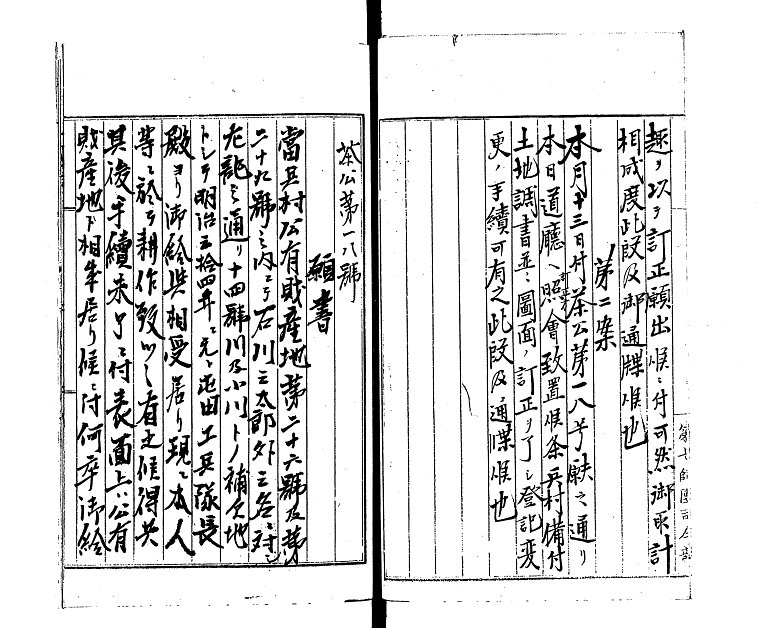 趣ヲ以テ訂正願出候ニ付可然御取計
相成度此段及御通牒候也
第二案
本月十三日付茶公第一八号願之通リ
本日道廳ヘ照會致置候条兵村備付
土地調書並ニ圖面ノ訂正ヲ了シ登記変
更ノ手續可有之此段及通牒候也
茶公第一八號
願書
當兵村公有財産地第二十六號及第
二十九號之内ニテ石川三太郎外三名ニ対シ
左記之通リ十四號川及小川トノ補欠地
トシテ明治三拾四年ニ元屯田工兵隊長
殿ヨリ御給與相受居リ現ニ本人
等ニ於テ耕作致シ有之候得共
其後手續未了ニ付表面上ハ公有
財産地ト相成居リ候ニ付何卒御給
第七師團司令部